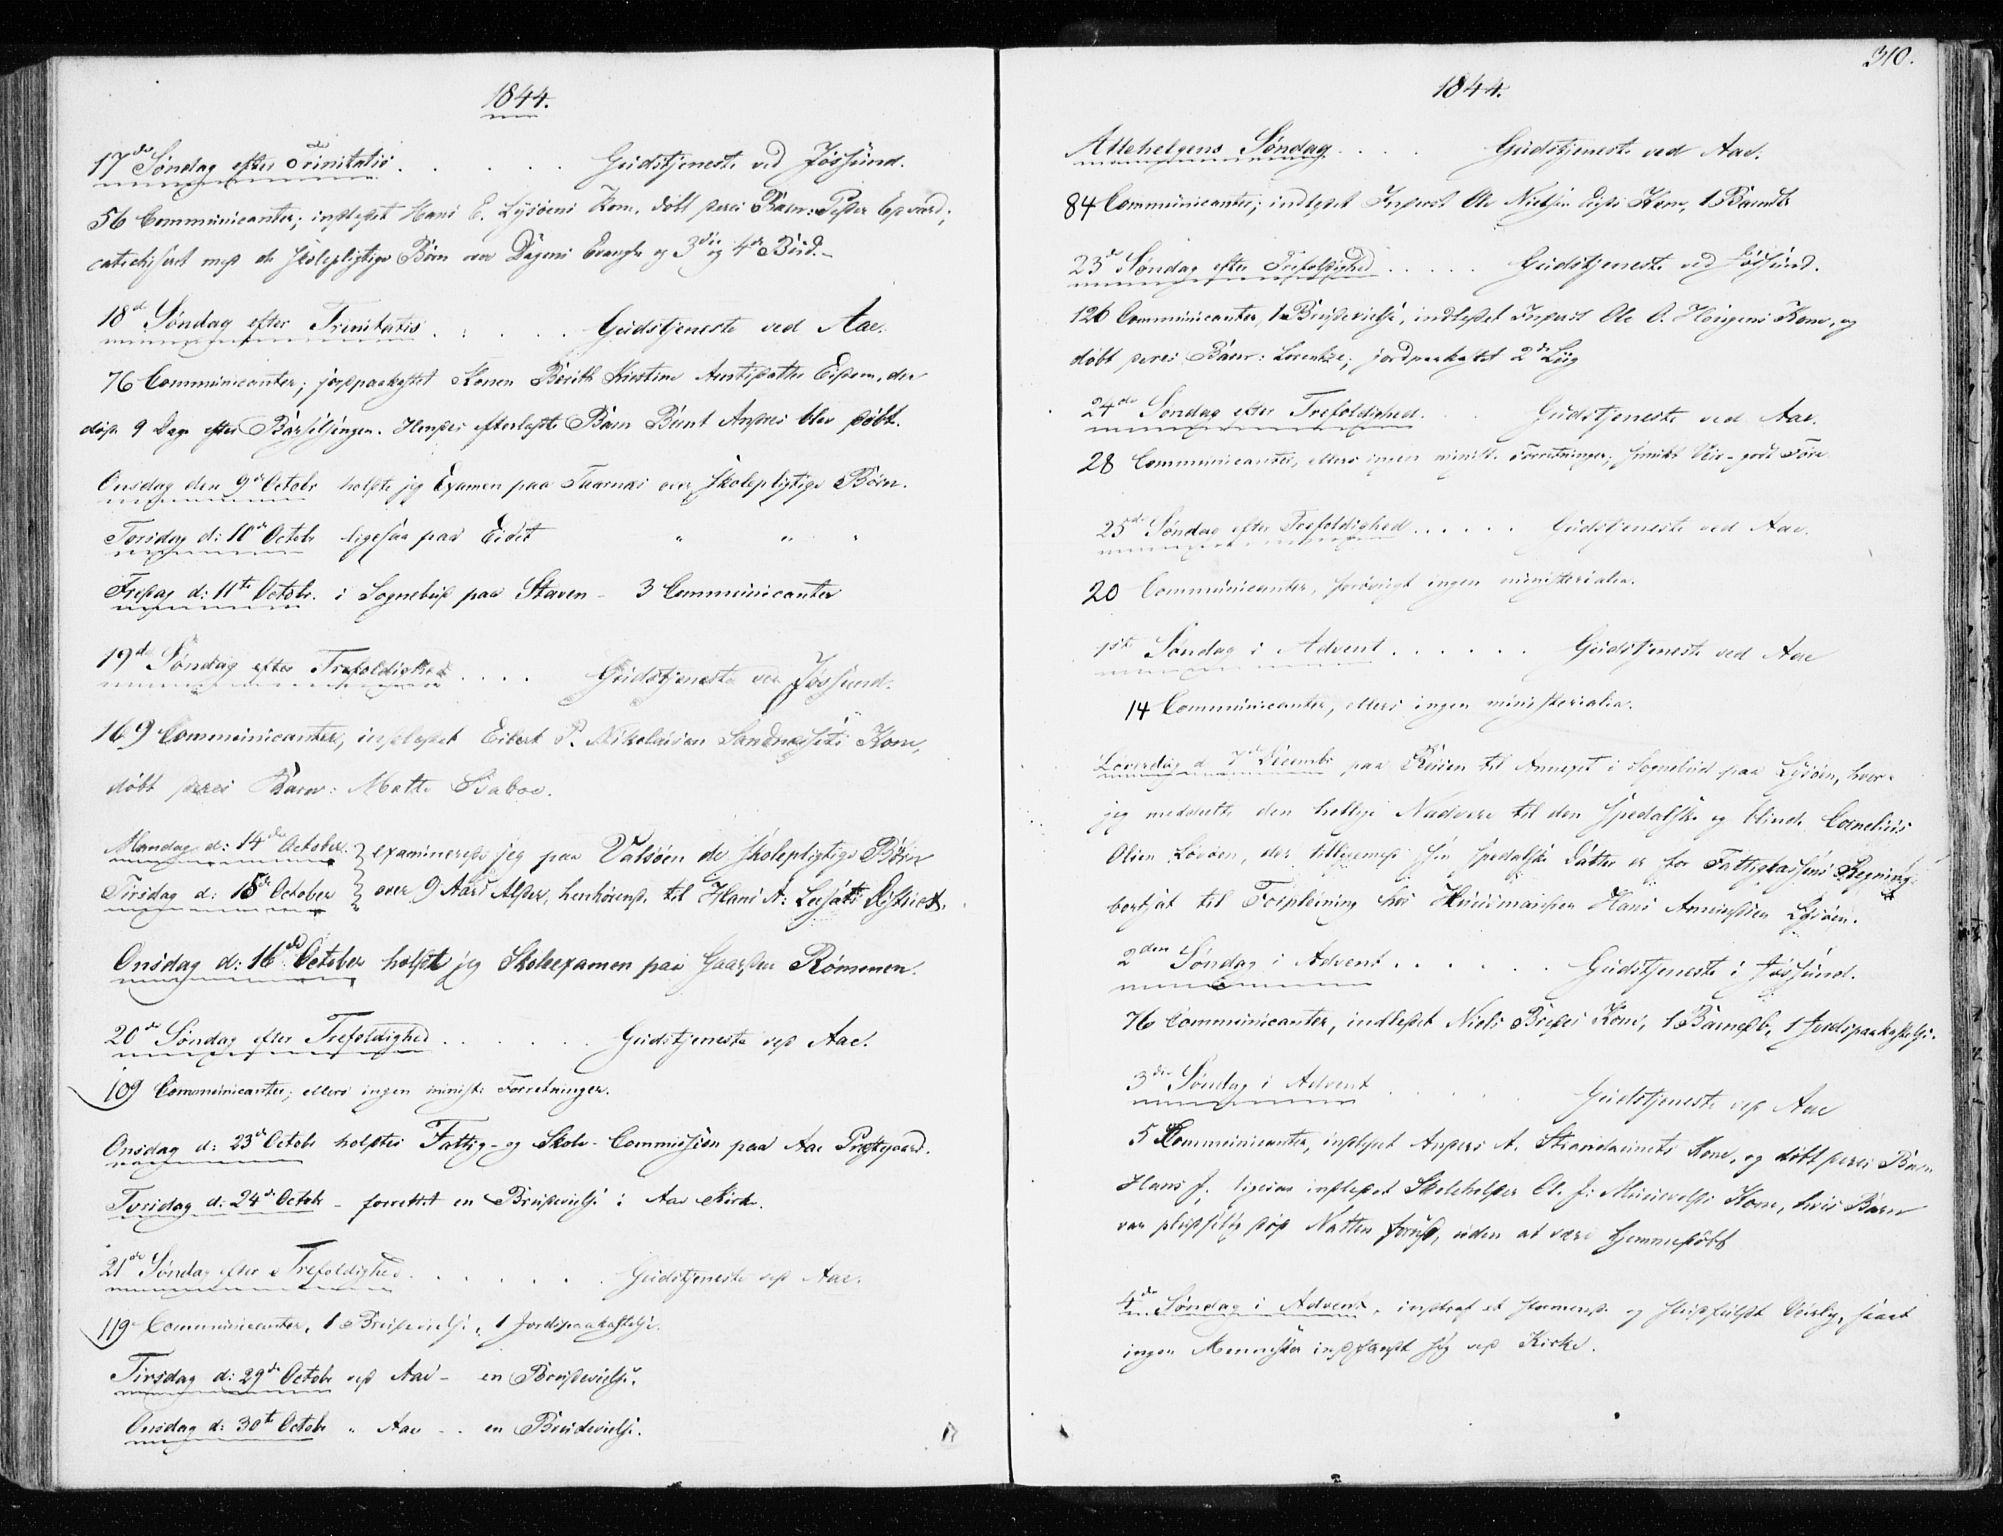 1844.
17de Søndag efter Trinitatis . . . . . Gudstjeneste ved Jøssund.
56 Communicanter; indledet Hans E. Lysøens Kone, døbt deres Barn: Peder Edvard;
catechiseret med de skolepligtige Børn over Dagens Evangl. og 3die og 4de Bud.-
18de Søndag efter Trinitatis . . . . Gudstjeneste ved Aae.
76 Communicanter; jordpaakastet Konen Berith Kirstine Eidem, der
døde 9 Dage efter Barselsengen. Hendes efterladte Barn Bernt Andreas blev døbt.
Onsdag den 9de Octobr holdte jeg Examen paa Taarnæs over skolepligtige Børn.
Torsdag d: 10de Octobr ligesaa paa Eidet " " "
Fredag d: 11te Octobr. i Sognebud paa Staven - 3 Communicanter
19de Søndag efter Trefoldighed . . . . Gudstjeneste ved Jøssund.
169 Communicanter, indledet Eilert P. Nikolaisen Sandnæssets Kone,
døbt deres Barn: Mette
Mandag d: 14de October. } examinerede jeg paa Valsøen de skolepligtige Børn
Tirsdag d: 15de October } over 9 Aars Alder, henhørende til Hans A: District.
Onsdag d: 16de October holdt jeg Skoleexamen paa Gaarden Rømmen.
20de Søndag efter Trefoldighed . . . . . . Gudstjeneste ved Aae.
109 Communicanter; ellers ingen minist: Forretninger.
Onsdag d: 23de Octobr holdtes Fattig- og Skole-Commission paa Aae Præstegaard.
Torsdag d: 24de Octobr - forrettet en Brudevielse i Aae Kirke.
21de Søndag efter Trefoldighed . . . . . . Gudstjeneste ved Aae.
119 Communicanter, 1 Brudevielse, 1 Jordpaakastelse.
Tirsdag d: 29de Octobr ved Aae - en Brudevielse.
Onsdag d: 30te Octobr " Aae - . en Brudevielse.
310.
1844.
Allehelgens Søndag . . . . Gudstjeneste ved Aae.
84 Communicanter; indledet Inderst Ole Nielsen Kone, 1 Barnedb
23de Søndag efter Trefoldighed . . . . . Gudstjeneste ved Jøssund.
126 Communicanter, 1 Brudevielse, indledet Inderst Ole O. Haugens Kone, og
døbt deres Barn: Lorentse; jordpaakastet 2de Liig
24de Søndag efter Trefoldighed. . . Gudstjeneste ved Aae.
28 Communicanter, ellers ingen minist. Forretninger, smukt Veir - godt Føre
25de Søndag efter Trefoldighed . . . . . Gudstjeneste ved Aae.
20 Communicanter, forøvrigt ingen ministerialia.
1ste Søndag i Advent . . . . . . Gudstjeneste ved Aae
14 Communicanter, ellers ingen ministerialia.
Løverdag d 7de Decembr paa Reisen til Annexet i Sognebud paa Lysøen, hvor
jeg meddelte den hellige Nadvere til den spedalske og blinde Cornelius
Olsen Løvøen, der tilligemed sin spedalske Datter er for Fattigkassens Regning
bortsat til Forpleining hos Huusmanden Hans Lysøen.
2den Søndag i Advent . . . . . . Gudstjeneste i Jøssund.
76 Communicanter, indledet Niels Kone, 1 Barnedb, 1 Jordpaakastelse.
3die Søndag i Advent . . . . . . Gudstjeneste ved Aae
5 Communicanter, indledet Anders A. Kone, og døbt deres Barn
Hans J, ligesaa indledet Skoleholder O. J: Kone, hvis Barn
var pludselig død Natten forud, uden at være hjemmedøbt
4de Søndag i Advent, indtraf et stormende og Veirlig, saaat
ingen Mennesker indfandt sig ved Kirke.